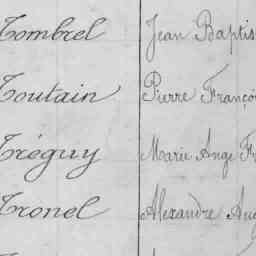 Tombrel Jean Baptis
Toutain Pierre Franço
Tréguy Marie Ange F
Tronel Alexandre Aug